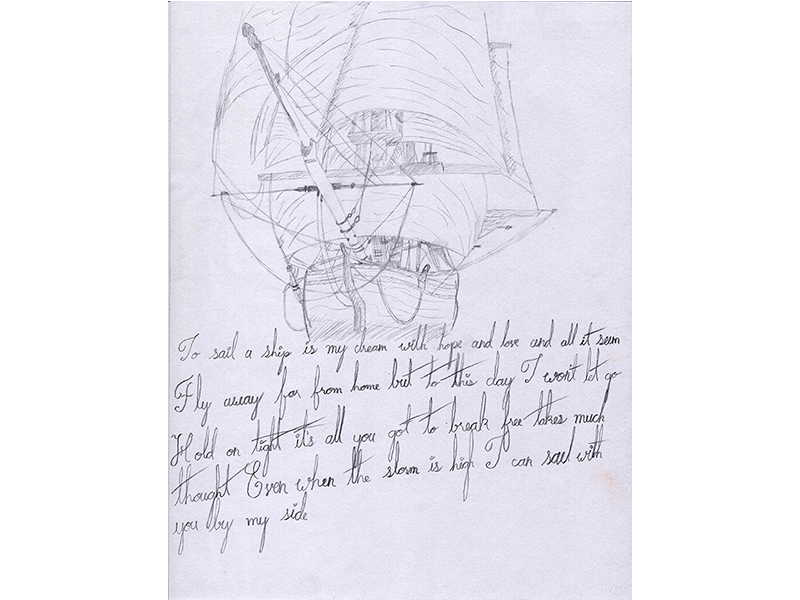 To sail a ship is my dream with hope and love and all it seem
Fly away far from home but to this day I won't let go
Hold on tight it's all you got to break free takes much
thought Even when the storm is high I can sail with
you by my side